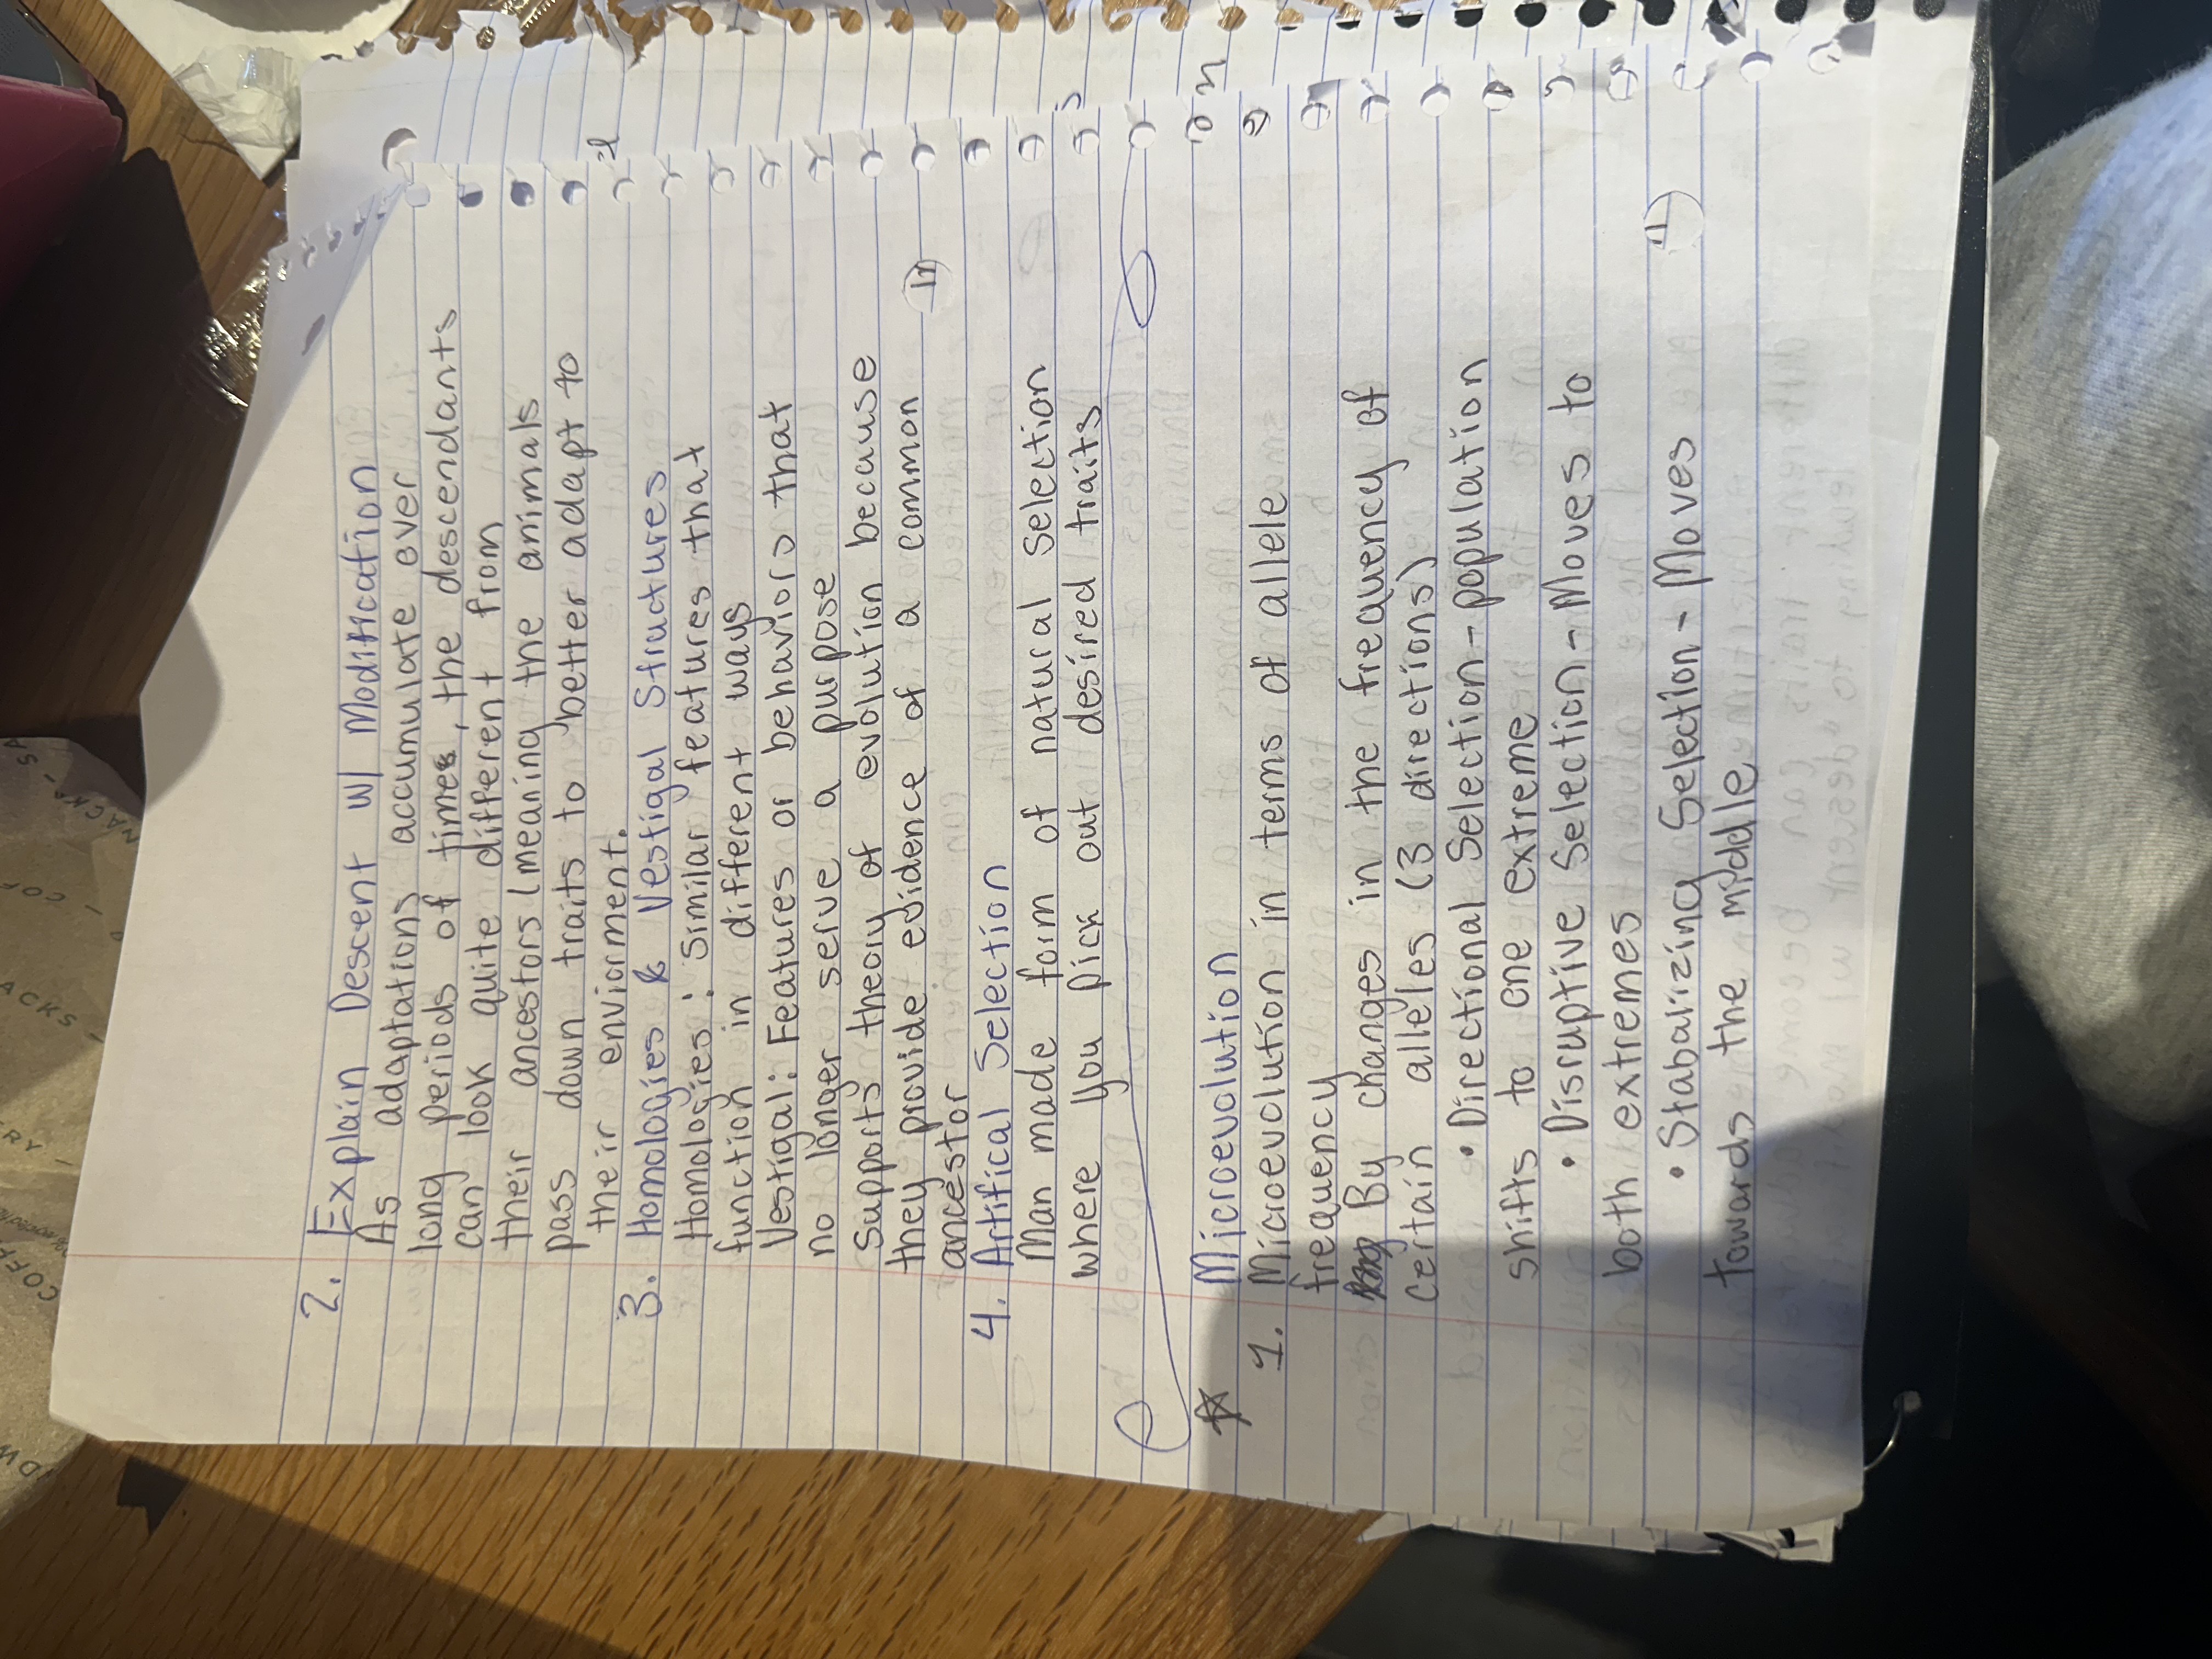 2. Explain Descent w/ Modification
As adaptations accumulate over
long periods of times, the descendants
can look quite different from
their ancestors (meaning the animals
pass down traits to better adapt to
their enviorment.
3. Homologies & Vestigal Structures
Homologies: Similar features that
function in different ways
Vestigal: Features or behaviors that
no longer serve a purpose
Supports theory of evolution because
they provide evidence of a common
ancestor
4. Artifical Selection
Man made form of natural selection
where you pick out desired traits
Microevolution
1. Microevolution in terms of allele
frequency
By changes in the frequency of
certain alleles (3 directions)
• Directional Selection - population
shifts to one extreme
• Disruptive Selection - Moves to
both extremes
• Stabarizing Selection - Moves
towards the middle